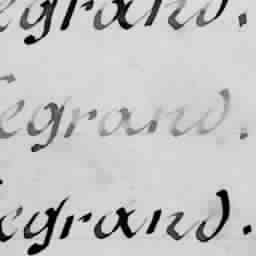 egrand.
egrand.
egrand.